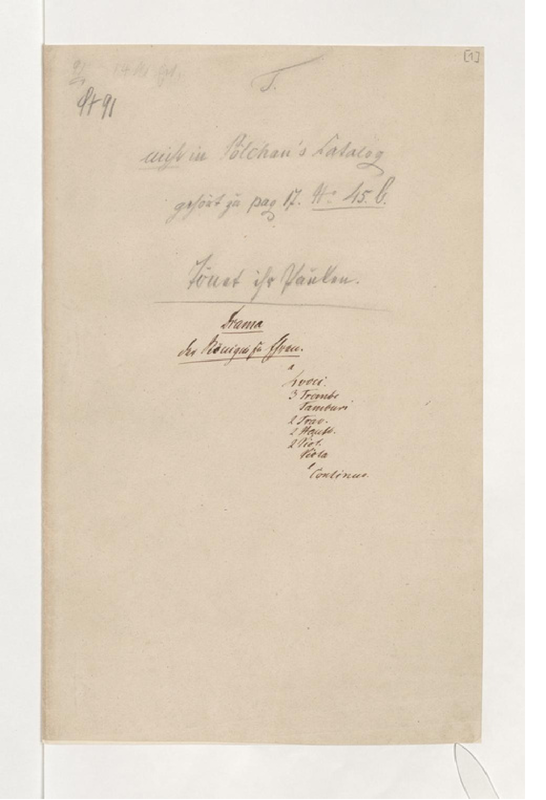 [1]
St 91
nicht in Pölchau's Catalog
gehört zu pag 17. No 45. b.
Tönet ihr Pauken.
Drama
der Königin zu Ehren.
a
4 voci.
3 Trombe
Tamburi
2 Trav.
2 Hautb.
2 Viol.
Viola
e
Continuo.